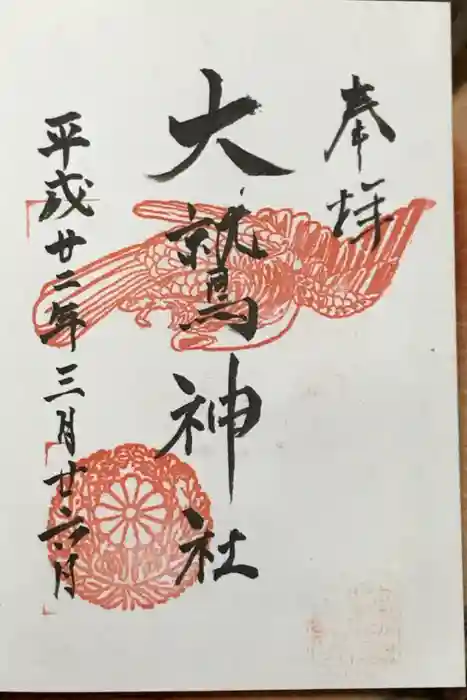 奉拝
大鷲神社
平成廿二年三月廿六日